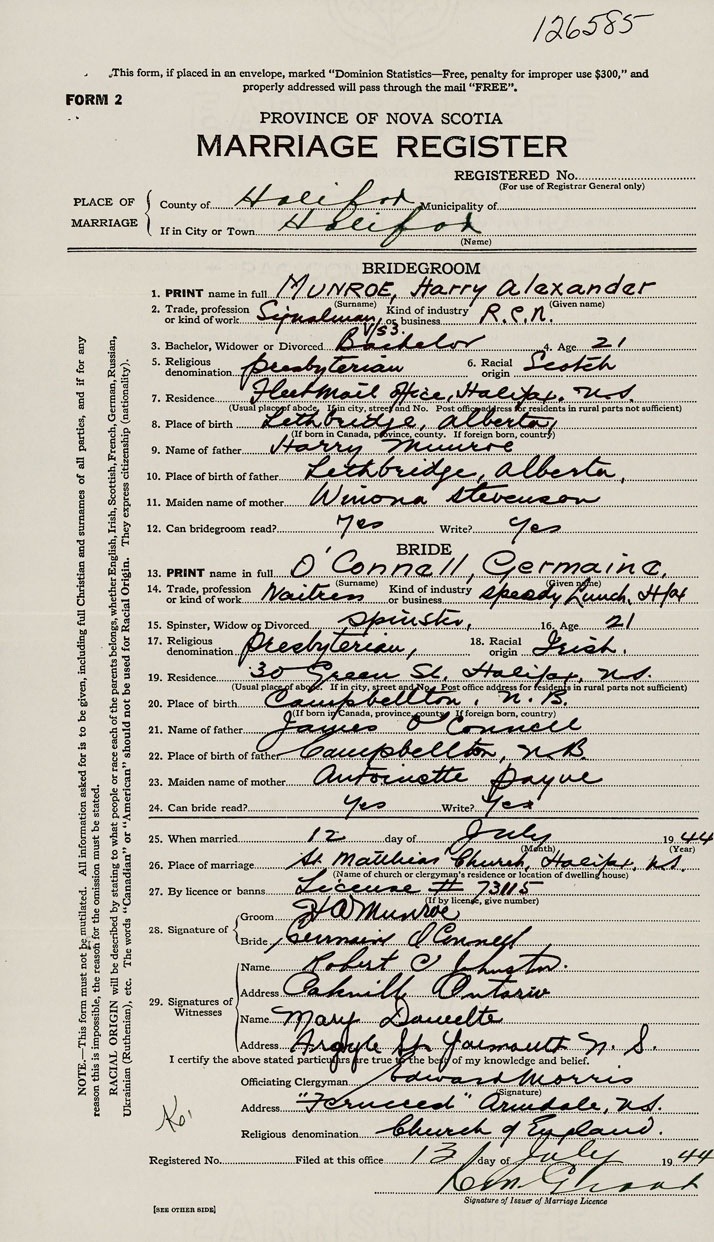 126585
This form, if placed in an envelope, marked "Dominion Statistics—Free, penalty for improper use $300," and
properly addressed will pass through the mail "FREE".
FORM 2
PROVINCE OF NOVA SCOTIA
MARRIAGE REGISTER
REGISTERED No.
(For use of Registrar General only)
PLACE OF MARRIAGE
County of Halifax Municipality of
If in City or Town Halifax
(Name)
BRIDEGROOM
1. PRINT name in full MUNROE, Harry Alexander
(Surname) (Given name)
2. Trade, profession or kind of work Signalman V/S3. Kind of industry or business R.C.N.
3. Bachelor, Widower or Divorced Bachelor 4. Age 21
5. Religious denomination Presbyterian 6. Racial origin Scotch
7. Residence Fleet Mail Office, Halifax, N.S.
(Usual place of abode. If in city, street and No. Post office address for residents in rural parts not sufficient)
8. Place of birth Lethbridge, Alberta,
(If born in Canada, province, county. If foreign born, country)
9. Name of father Harry Munroe
10. Place of birth of father Lethbridge, Alberta,
11. Maiden name of mother Winona Stevenson
12. Can bridegroom read? Yes Write? Yes
BRIDE
13. PRINT name in full O'Connell, Germaine.
(Surname) (Given name)
14. Trade, profession or kind of work Waitress Kind of industry or business Speedy Lunch, Hfax
15. Spinster, Widow or Divorced Spinster, 16. Age 21
17. Religious denomination Presbyterian, 18. Racial origin Irish.
19. Residence 30 Green St. Halifax, N.S.
(Usual place of abode. If in city, street and No. Post office address for residents in rural parts not sufficient)
20. Place of birth Campbellton, N.B.
(If born in Canada, province, county. If foreign born, country)
21. Name of father James O'Connell
22. Place of birth of father Campbellton, N.B.
23. Maiden name of mother Antoinette Payne
24. Can bride read? Yes Write? Yes
25. When married 12 day of July 1944
(Month) (Year)
26. Place of marriage St. Matthias' Church, Halifax, N.S.
(Name of church or clergyman's residence or location of dwelling house)
27. By licence or banns License # 73115
(If by license, give number)
28. Signature of
Groom H A Munroe
Bride Germain O'Connell
29. Signatures of Witnesses
Name Robert C Johnston.
Address Oakville Ontario
Name Mary
Address Argyle Yarmouth N. S.
I certify the above stated particulars are true to the best of my knowledge and belief.
Officiating Clergyman Edward Morris
(Signature)
Address Armdale, N.S.
Religious denomination Church of England.
Registered No. Filed at this office 13 day of July 1944
Signature of Issuer of Marriage Licence
[SEE OTHER SIDE]
NOTE.—This form must not be mutilated. All information asked for is to be given, including full Christian and surnames of all parties, and if for any
reason this is impossible, the reason for the omission must be stated.
RACIAL ORIGIN will be described by stating to what people or race each of the parents belongs, whether English, Irish, Scottish, French, German, Russian,
Ukrainian (Ruthenian), etc. The words "Canadian" or "American" should not be used for Racial Origin. They express citizenship (nationality).